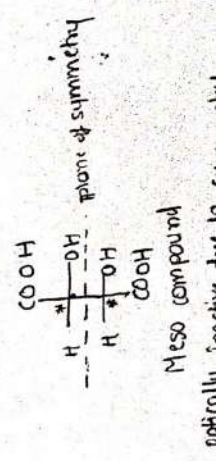 COOH
* H OH
plane of symmetry
H * OH
COOH
Meso compound
optically inactive due to